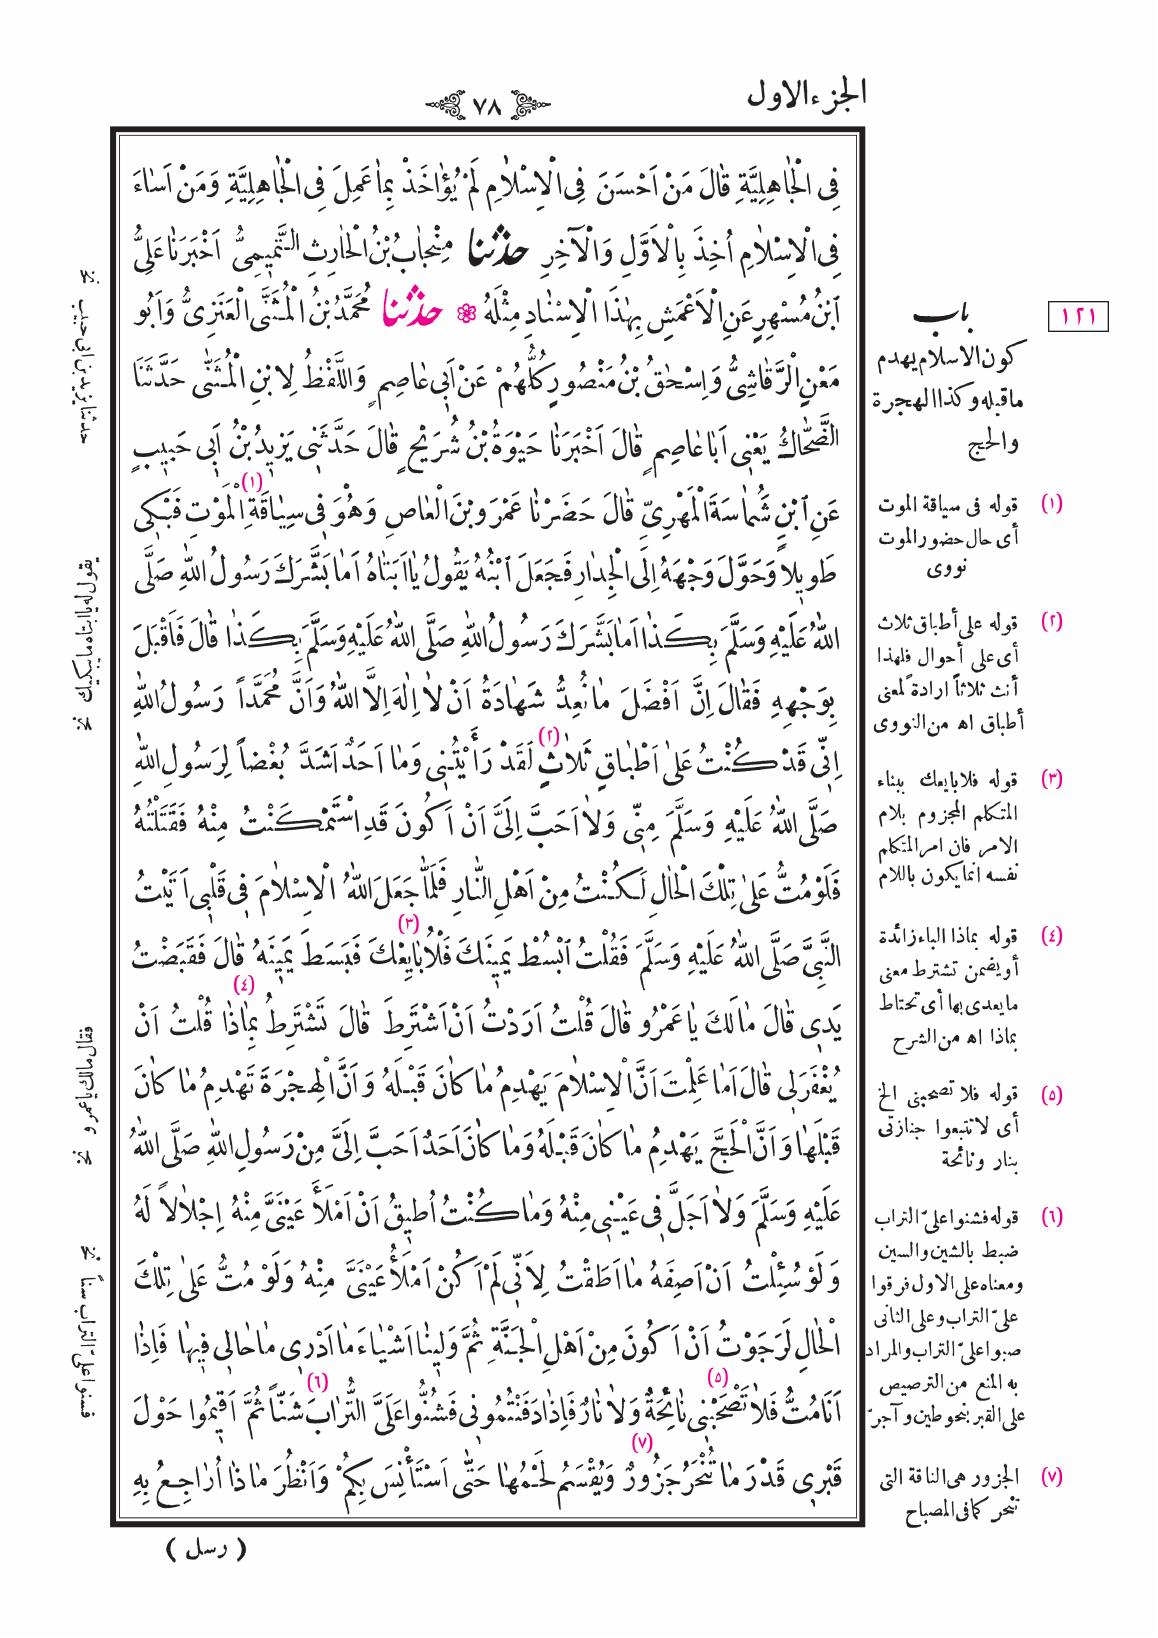 الجزء الاول
٧٨
فِى الْجَاهِلِيَّةِ قَالَ مَنْ اَحْسَنَ فِى الْاِسْلَامِ لَمْ يُؤَاخَذْ بِمَا عَمِلَ فِى الْجَاهِلِيَّةِ وَمَنْ اَسَاءَ
فِى الْاِسْلَامِ اُخِذَ بِالْاَوَّلِ وَالْآخِرِ حدثنا مِنْجَابُ بْنُ الْحَارِثِ التَّمِيمِىُّ اَخْبَرَنَا عَلِىُّ
ابْنُ مُسْهِرٍ عَنِ الْاَعْمَشِ بِهٰذَا الْاِسْنَادِ مِثْلَهُ ❁ حدثنا مُحَمَّدُ بْنُ الْمُثَنَّى الْعَنَزِىُّ وَاَبُو
مَعْنٍ الرَّقَاشِىُّ وَاِسْحٰقُ بْنُ مَنْصُورٍ كُلُّهُمْ عَنْ اَبِى عَاصِمٍ وَاللَّفْظُ لِابْنِ الْمُثَنّٰى حَدَّثَنَا
الضَّحَّاكُ يَعْنِى اَبَا عَاصِمٍ قَالَ اَخْبَرَنَا حَيْوَةُ بْنُ شُرَيْحٍ قَالَ حَدَّثَنِى يَزِيدُ بْنُ اَبِى حَبِيبٍ
عَنِ ابْنِ شُمَاسَةَ الْمَهْرِىِّ قَالَ حَضَرْنَا عَمْرَو بْنَ الْعَاصِ وَهُوَ فِى سِيَاقَةِ (١) الْمَوْتِ فَبَكٰى
طَوِيلاً وَحَوَّلَ وَجْهَهُ اِلَى الْجِدَارِ فَجَعَلَ ابْنُهُ يَقُولُ يَا اَبَتَاهُ اَمَا بَشَّرَكَ رَسُولُ اللهِ صَلَّى
اللهُ عَلَيْهِ وَسَلَّمَ بِكَذَا اَمَا بَشَّرَكَ رَسُولُ اللهِ صَلَّى اللهُ عَلَيْهِ وَسَلَّمَ بِكَذَا قَالَ فَاَقْبَلَ
بِوَجْهِهِ فَقَالَ اِنَّ اَفْضَلَ مَا نُعِدُّ شَهَادَةُ اَنْ لَا اِلٰهَ اِلَّا اللهُ وَاَنَّ مُحَمَّداً رَسُولُ اللهِ
اِنِّى قَدْ كُنْتُ عَلٰى اَطْبَاقٍ ثَلَاثٍ (٢) لَقَدْ رَأَيْتُنِى وَمَا اَحَدٌ اَشَدَّ بُغْضاً لِرَسُولِ اللهِ
صَلَّى اللهُ عَلَيْهِ وَسَلَّمَ مِنِّى وَلَا اَحَبَّ اِلَىَّ اَنْ اَكُونَ قَدِ اسْتَمْكَنْتُ مِنْهُ فَقَتَلْتُهُ
فَلَوْ مُتُّ عَلٰى تِلْكَ الْحَالِ لَكُنْتُ مِنْ اَهْلِ النَّارِ فَلَمَّا جَعَلَ اللهُ الْاِسْلَامَ فِى قَلْبِى اَتَيْتُ
النَّبِىَّ صَلَّى اللهُ عَلَيْهِ وَسَلَّمَ فَقُلْتُ ابْسُطْ يَمِينَكَ فَلْاُبَايِعْكَ (٣) فَبَسَطَ يَمِينَهُ قَالَ فَقَبَضْتُ
يَدِى قَالَ مَا لَكَ يَا عَمْرُو قَالَ قُلْتُ اَرَدْتُ اَنْ اَشْتَرِطَ قَالَ تَشْتَرِطُ بِمَاذَا (٤) قُلْتُ اَنْ
يُغْفَرَ لِى قَالَ اَمَا عَلِمْتَ اَنَّ الْاِسْلَامَ يَهْدِمُ مَا كَانَ قَبْلَهُ وَاَنَّ الْهِجْرَةَ تَهْدِمُ مَا كَانَ
قَبْلَهَا وَاَنَّ الْحَجَّ يَهْدِمُ مَا كَانَ قَبْلَهُ وَمَا كَانَ اَحَدٌ اَحَبَّ اِلَىَّ مِنْ رَسُولِ اللهِ صَلَّى اللهُ
عَلَيْهِ وَسَلَّمَ وَلَا اَجَلَّ فِى عَيْنِى مِنْهُ وَمَا كُنْتُ اُطِيقُ اَنْ اَمْلَأَ عَيْنَىَّ مِنْهُ اِجْلَالاً لَهُ
وَلَوْ سُئِلْتُ اَنْ اَصِفَهُ مَا اَطَقْتُ لِاَنِّى لَمْ اَكُنْ اَمْلَأُ عَيْنَىَّ مِنْهُ وَلَوْ مُتُّ عَلٰى تِلْكَ
الْحَالِ لَرَجَوْتُ اَنْ اَكُونَ مِنْ اَهْلِ الْجَنَّةِ ثُمَّ وَلِينَا اَشْيَاءَ مَا اَدْرِى مَا حَالِى فِيهَا فَاِذَا
اَنَا مُتُّ فَلَا تَصْحَبْنِى (٥) نَائِحَةٌ وَلَا نَارٌ فَاِذَا دَفَنْتُمُونِى فَشُنُّوا عَلَىَّ التُّرَابَ (٦) شَنّاً ثُمَّ اَقِيمُوا حَوْلَ
قَبْرِى قَدْرَ مَا تُنْحَرُ جَزُورٌ (٧) وَيُقْسَمُ لَحْمُهَا حَتّٰى اَسْتَأْنِسَ بِكُمْ وَاَنْظُرَ مَاذَا اُرَاجِعُ بِهِ
( رسل )
١٢١
باب
كون الاسلام يهدم
ما قبله وكذا الهجرة
والحج
(١) قوله فى سياقة الموت
أى حال حضور الموت
نووى
(٢) قوله على أطباق ثلاث
أى على أحوال فلهذا
أنث ثلاثاً ارادة لمعنى
أطباق اه من النووى
(٣) قوله فلابايعك ببناء
المتكلم المجزوم بلام
الامر فان امر المتكلم
نفسه انما يكون باللام
(٤) قوله بماذا الباء زائدة
أو يضمن تشترط معنى
ما يعدى بها أى تحتاط
بماذا اه من الشرح
(٥) قوله فلا تصحبنى الخ
أى لا تتبعوا جنازتى
بنار ونائحة
(٦) قوله فشنوا علىّ التراب
ضبط بالشين والسين
ومعناه على الاول فرقوا
علىّ التراب وعلى الثانى
صبوا علىّ التراب والمراد
به المنع من الترصيص
على القبر بنحو طين وآجرّ
(٧) الجزور هى الناقة التى
تنحر كما فى المصباح
حدثنا يزيد بن ابى حبيب نخ
يقول له يا ابتاه ما يبكيك نخ
فقال مالك يا عمرو نخ
فسنوا علىّ التراب سناً نخ